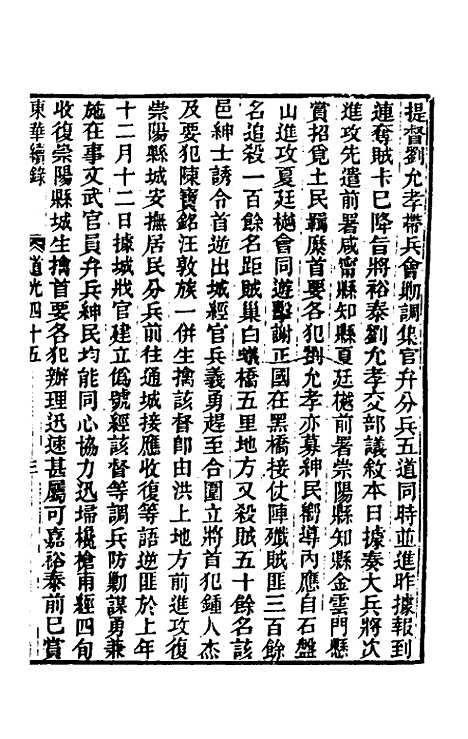 提督劉允孝帶兵會勦調集官弁分兵五道同時並進昨據報到
連奪賊卡已降旨將裕泰劉允孝交部議敘本日據奏大兵將次
進攻先遣前署咸甯縣知縣夏廷樾前署崇陽縣知縣金雲門懸
賞招覓土民羈縻首要各犯劉允孝亦募紳民嚮導內應自石盤
山進攻夏廷樾會同遊擊謝正國在黑橋接仗陣殲賊匪三百餘
名追殺一百餘名距賊巢白蟻橋五里地方又殺賊五十餘名該
邑紳士誘令首逆出城經官兵義勇趕至合圍立將首犯鍾人杰
及要犯陳寶銘汪敦族一併生擒該督卽由洪上地方前進攻復
崇陽縣城安撫居民分兵前往通城接應收復等語逆匪於上年
十二月十二日據城戕官建立僞號經該督等調兵防勦謀勇兼
施在事文武官員弁兵紳民均能同心協力迅埽欃槍甫經四旬
收復崇陽縣城生擒首要各犯辦理迅速甚屬可嘉裕泰前已賞
東華續錄 道光四十五 三